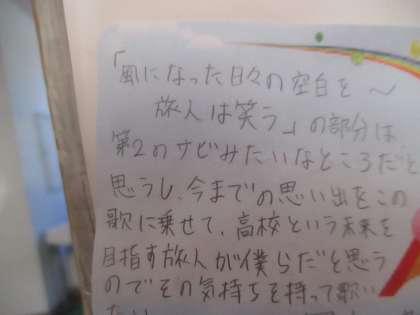 「風になった日々の空白を〜
旅人は笑う」の部分は
第2のサビみたいなところだと
思うし、今までの思い出をこの
歌に乗せて、高校という未来を
目指す旅人が僕らだと思う
のでその気持ちを持って歌い
たい